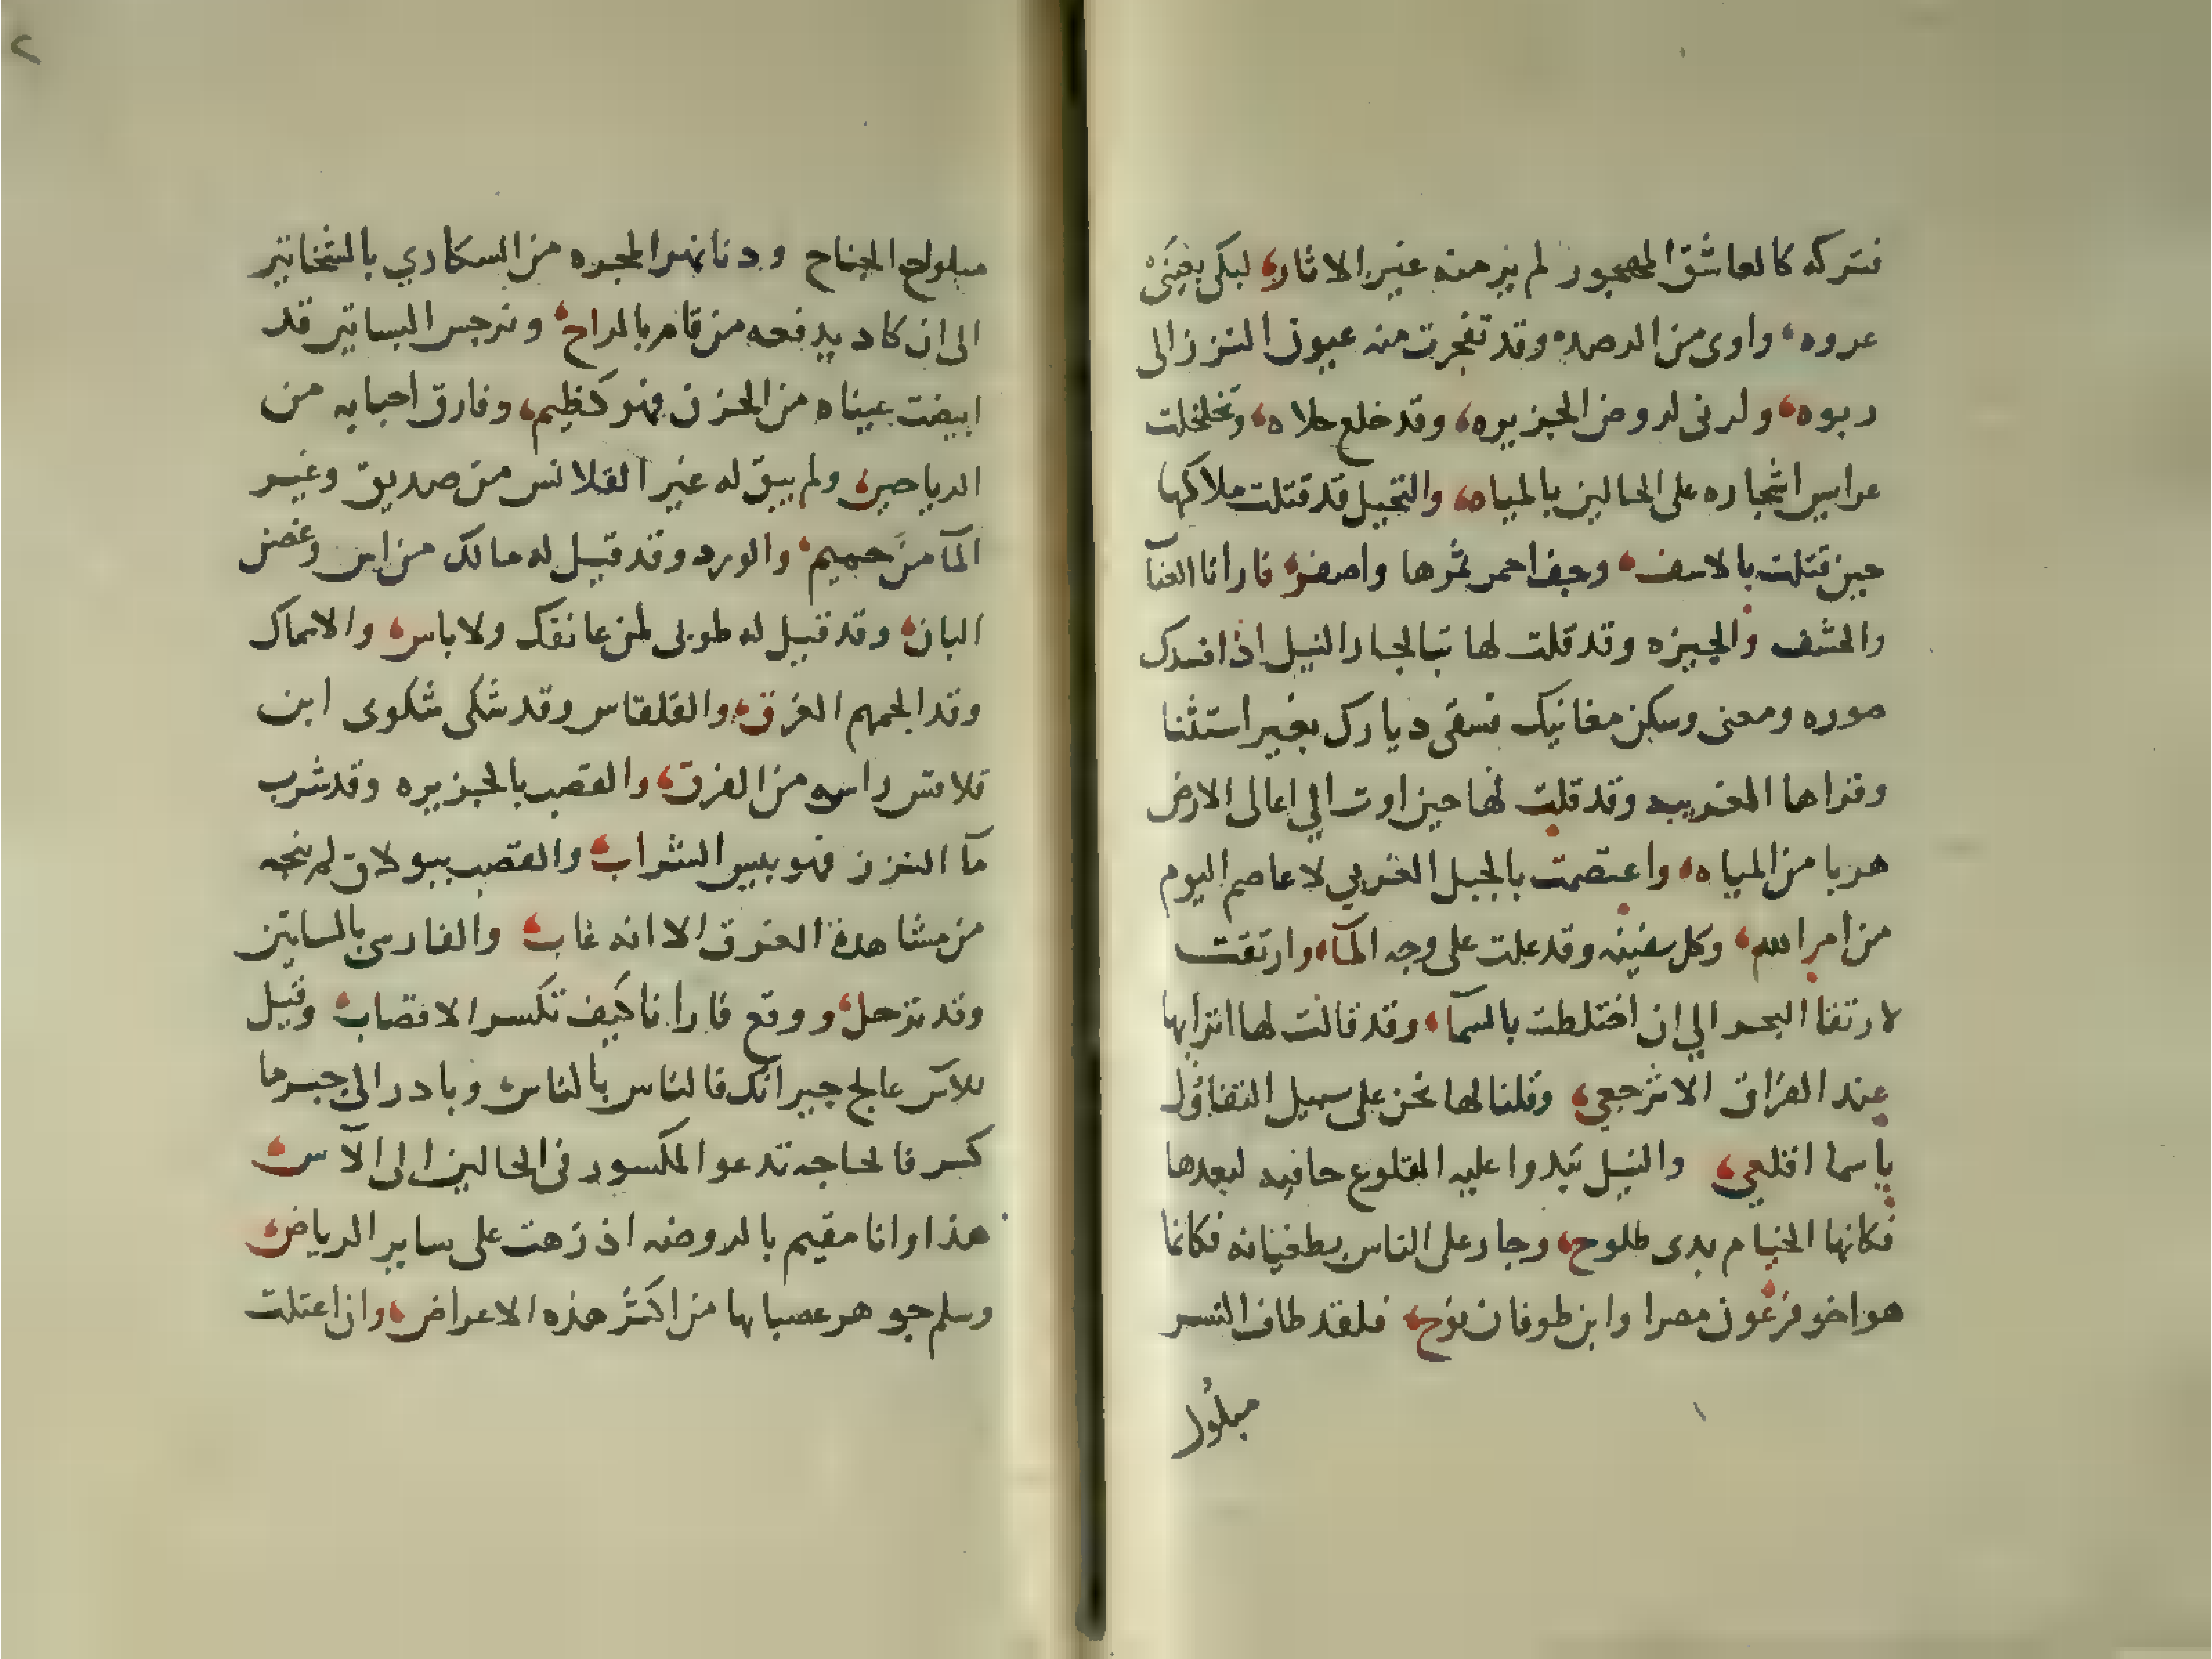 فتركه كالعاشق المهجور لم ير منه غير الاثار، لبكى بعينى
عروه، واوى من الرصد وقد تفجرت منه عيون النزز الى
ربوه، ولرثى لروض الجزيره، وقد خلع حلاه، وتخلخلت
عرايس اشجاره على الحالين بالمياه، والنخيل قد قتلت ملاكها
حين قتلت بالاسف، وجف احمر ثمرها واصفر، فارانا العنا
والحشف والجيزه وقد قلت لها تبا لجار النيل اذ افسدك
صوره ومعنى وسكن مغانيك فسقى ديارك بغير استثنا
وقراها الغربيه وقد قلت لها حين اوت الي اعالى الارض
هربا من المياه، واعتصمت بالجبل الغربي لا عاصم اليوم
من امر الله، وكل سفينه وقد علت على وجه المآ، وارتقت
لارتفا البحر الي ان اختلطت بالسمآ، وقد قالت لها اترابها
عند الفراق الا ترجعي، وقلنا لها نحن على سبيل التفاؤل
يا سما اقلعي، والنيل تبدوا عليه القلوع حافيه لبعدها
فكانها الخيام بدى طلوح، وجار على الناس بطغيانه فكانما
هو اخو فرعون مصرا وابن طوفان نوح، فلقد طاف النسر
مبلول
مبلول الجناح ودنا نهر المجره من السكاري بالشخاتير
الى ان كاد يدفعه من قام بالراح، ونرجس البساتين قد
ابيضت عيناه من الحزن فهو كظيم، وفارق احبابه من
الرياحين، ولم يبق له غير القلانس من صديق وغير
المآ من حميم، والورد وقد قيل له مالك من اس وغصن
البان، وقد قيل له طوبى لمن عانقك ولا باس، والاسماك
وقد الجمهم الغرق، والقلقاس وقد شكى شكوى ابن
قلاقس راسه من الفرق، والقصب بالجزيره وقد شرب
مآ النزز فهو بيس الشراب، والقصب ببولاق لم ينجه
من مشاهدة الغرق الا انه غاب، والفارسى بالساتين
وقد ترحل، ووقع فارانا كيف تكسر الاقصاب، وقيل
للآس عالج جيرانك فالناس بالناس، وبادر الى جبر ما
كسر فالحاجه تدعو المكسور فى الحالين الى الآس،
هذا وانا مقيم بالروضه اذ زهت على ساير الرياض،
وسلم جوهر عصبابها من اكثر هذه الاعراض، وان اعتلت